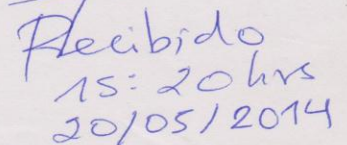 Recibido
15:20 hrs
20/05/2014